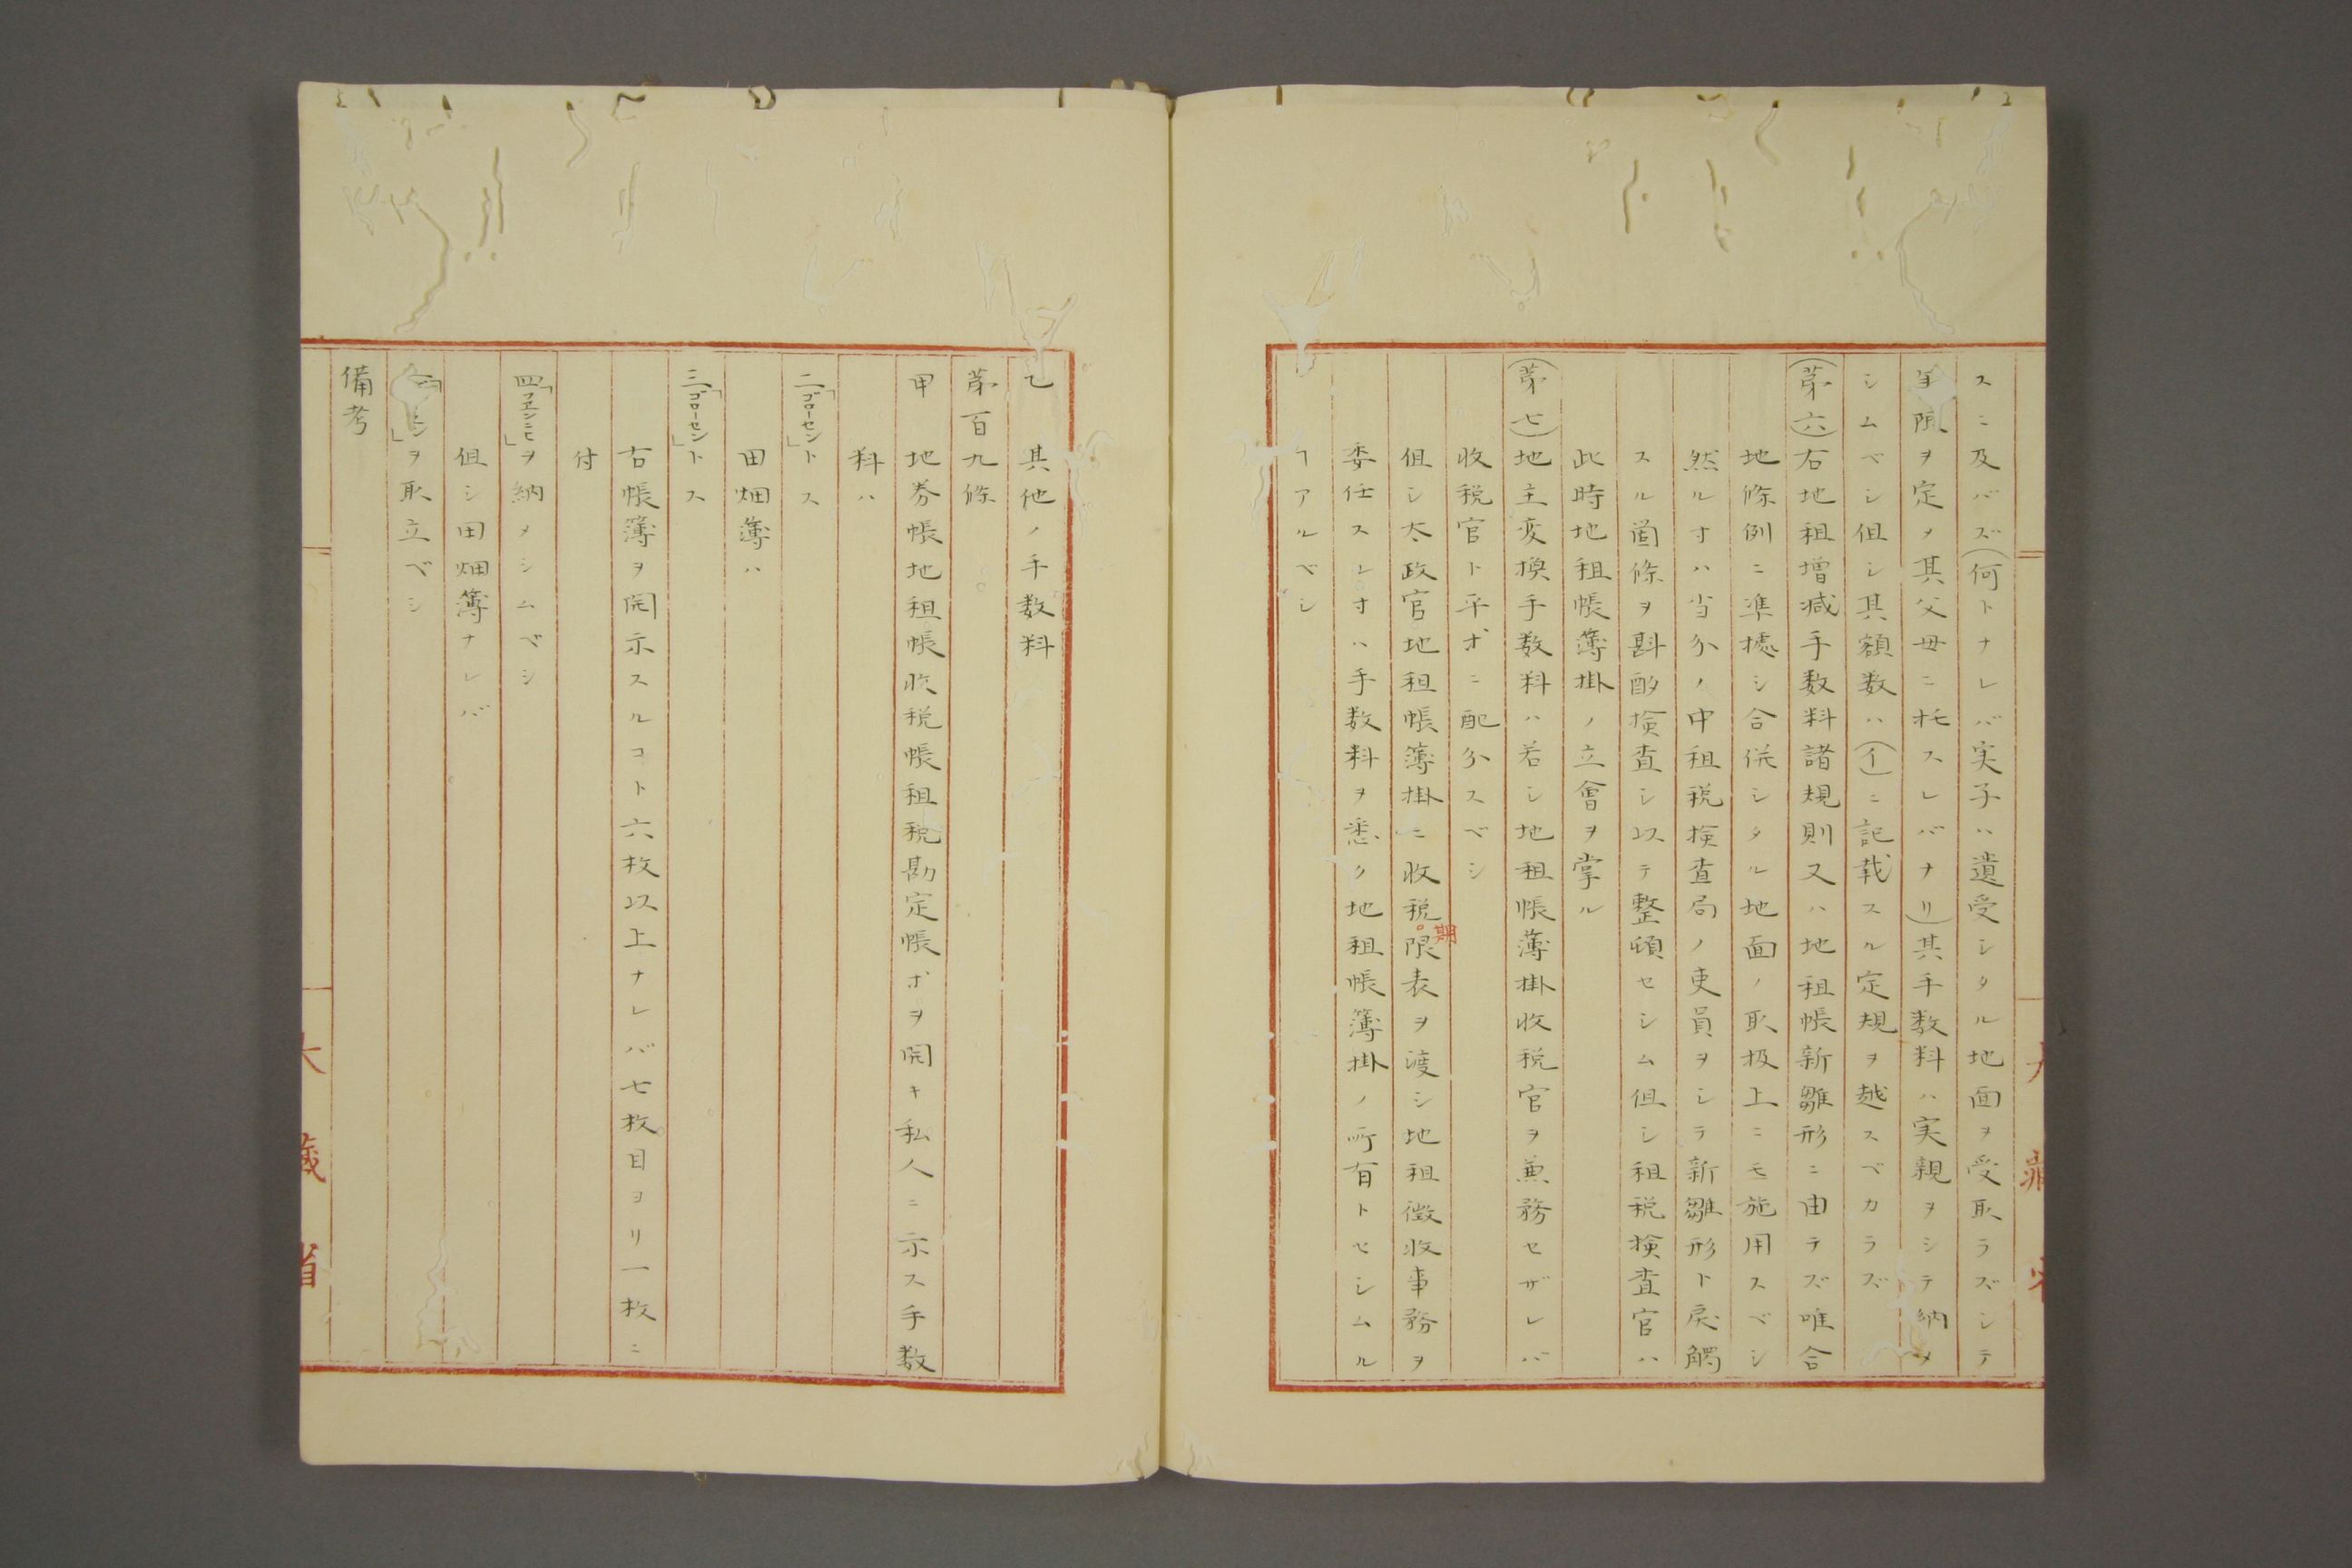 スニ及バズ(何トナレバ実子ハ遺受シタル地面ヲ受取ラズシテ
年限ヲ定メ其父母ニ托スレバナリ)其手数料ハ実親ヲシテ納メ
シムベシ但シ其額数ハ(イ)ニ記載スル定規ヲ越スベカラズ
(第六)右地租増減手数料諸規則又ハ地租帳新雛形ニ由テズ唯合
地條例ニ準據シ合併シタル地面ノ取扱上ニモ施用スベシ
然ルㄐハ当分ノ中租税検査局ノ吏員ヲシテ新雛形ト戻觸
スル箇條ヲ斟酌検査シ以テ整頓セシム但シ租税検査官ハ
此時地租帳簿掛ノ立會ヲ掌ル
(第七)地主変換手数料ハ若シ地租帳薄掛收税官ヲ兼務セザレバ
收税官ト平オニ配分スベシ
但シ太政官地租帳簿掛ニ收税。限表ヲ渡シ地租徴收事務ヲ
期
委任スレㄐハ手数料ヲ悉ク地租帳簿掛ノ所有トセシムル
ヿアルベシ
大藏省
乙 其他ノ手数料
第百九條
甲 地券帳地租帳收税帳租税勘定帳ホヲ開キ私人ニ示ス手数
料ハ
二「ゴローセント」トス
田畑簿ハ
三「ゴローセン」トス
右帳簿ヲ開示スルコト六枚以上ナレバ七枚目ヨリ一枚ニ
付
四「フエンニヒ」ヲ納メシムベシ
但シ田畑簿ナレバ
ヲ取立ベシ
備考
大藏省